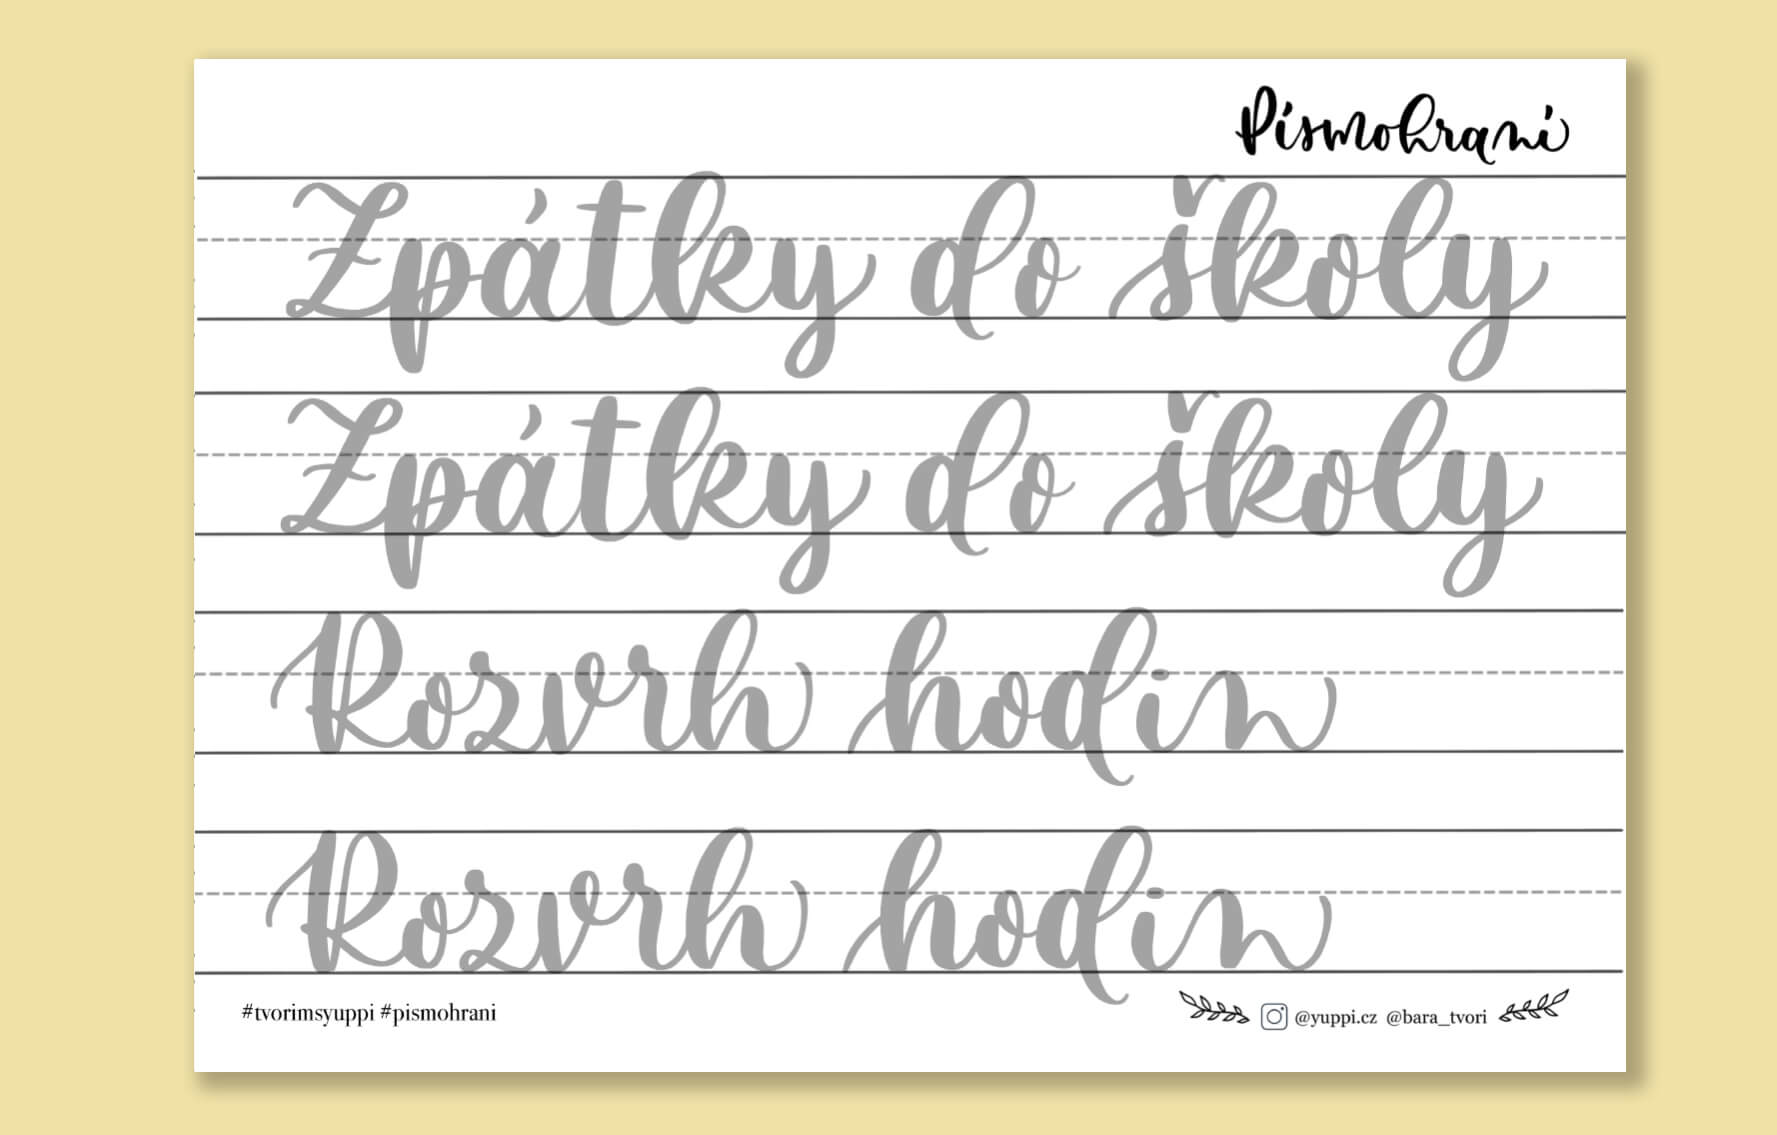 Písmohraní
Zpátky do školy
Zpátky do školy
Rozvrh hodin
Rozvrh hodin
#tvorimsyuppi #pismohrani
@yuppi.cz @bara_tvori